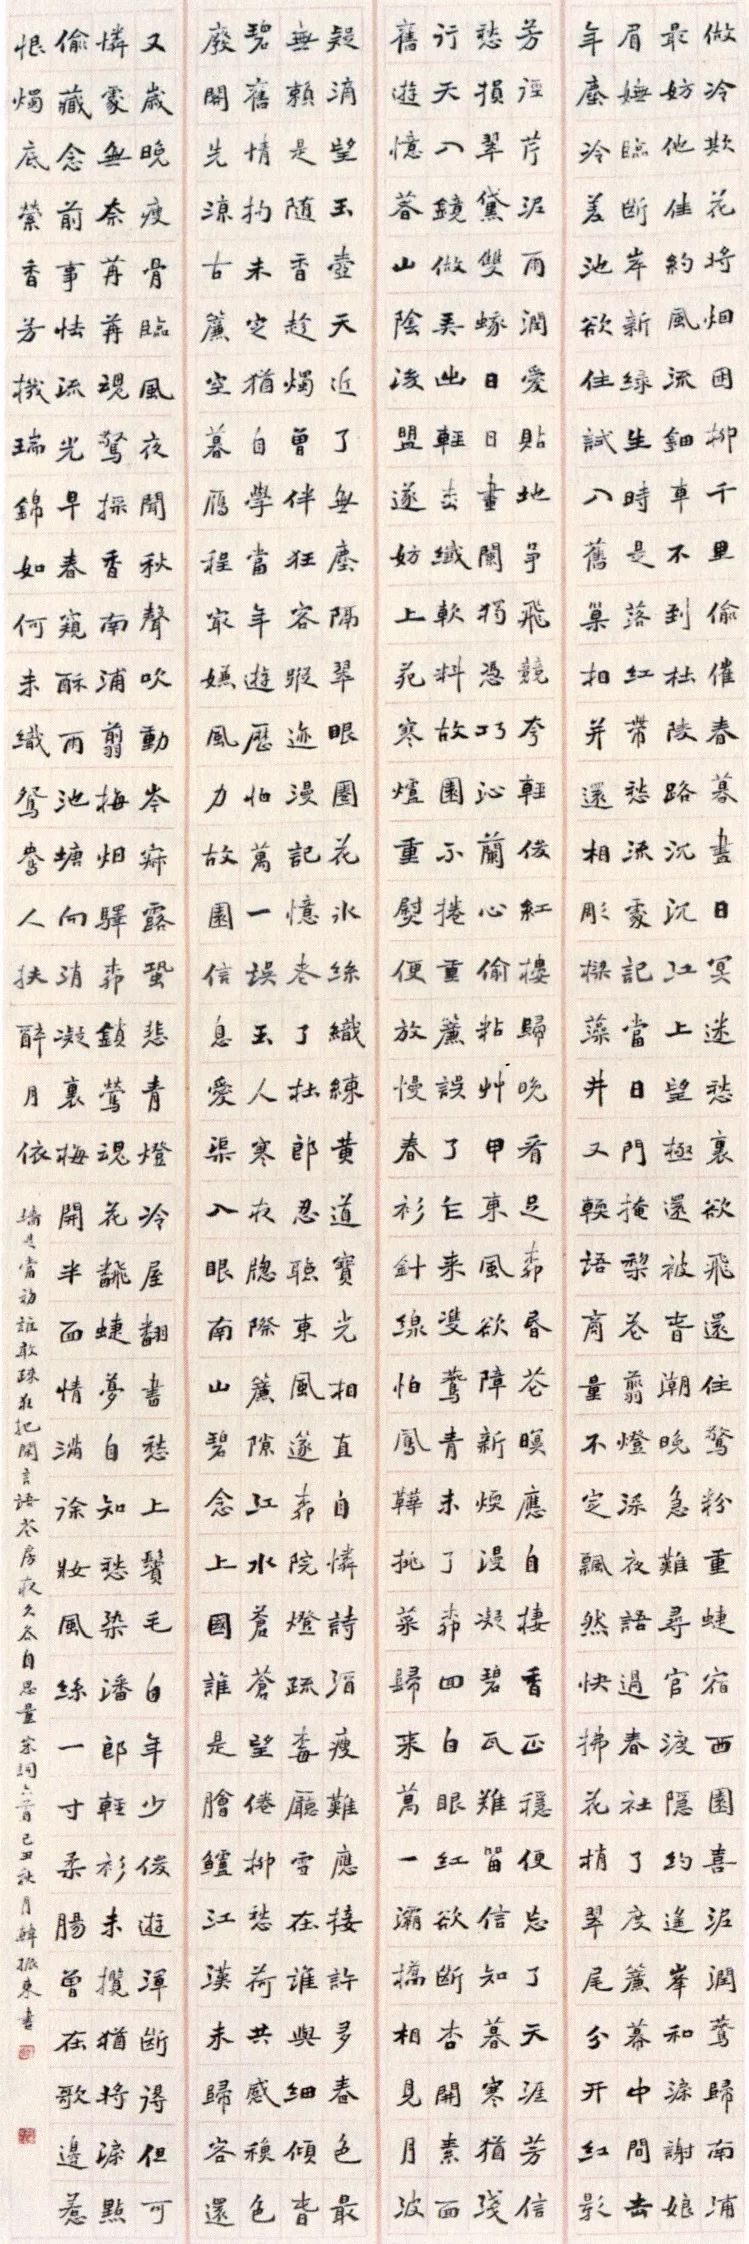 做冷欺花將烟困柳千里偷催春暮盡日冥迷愁裏欲飛還住驚粉重蝶宿西園喜泥潤燕歸南浦
最妨他佳約風流鈿車不到杜陵路沉沉江上望極還被春潮晚急難尋官渡隱約遙峯和淚謝娘
眉嫵臨斷岸新綠生時是落紅帶愁流處記當日門掩梨花翦燈深夜語過春社了度簾幕中間去
年塵冷差池欲住試入舊巢相并還相彫樑藻井又軟語商量不定飄然快拂花梢翠尾分开紅影
芳徑芹泥雨潤愛貼地爭飛競夸輕俊紅樓歸晚看足柳昏花暝應自棲香正穩便忘了天涯芳信
愁損翠黛雙蛾日日畫闌獨憑巧沁蘭心偷粘艸甲東風欲障新煖漫凝碧瓦難留信知暮寒猶淺
行天入鏡做弄出輕鬆纖軟料故園不捲重簾誤了乍來雙燕青未了柳回白眼紅欲斷杏開素面
舊遊憶著山陰後盟遂妨上苑寒爐重熨便放慢春衫針線怕鳳鞾挑菜歸來萬一灞橋相見月波
疑滴望玉壺天近了無塵隔翠眼圈花冰絲織練黃道寶光相直自憐詩酒瘦難應接許多春色最
無賴是隨香趁燭曾伴狂客蹤迹漫記憶老了杜郎忍聽東風篴柳院燈疏梅廳雪在誰與細傾春
碧舊情拘未定猶自學當年遊歷怕萬一誤玉人寒夜牕際簾隙江水蒼蒼望倦柳愁荷共感秋色
廢閣先涼古簾空暮雁程最嫌風力故園信息愛渠入眼南山碧念上國誰是膾鱸江漢未歸客還
又歲晚瘦骨臨風夜聞秋聲吹動岑寂露蛩悲青燈冷屋翻書愁上鬢毛白年少俊遊渾斷得但可
憐處無奈苒苒魂驚採香南浦翦梅烟驛柳鎖鶯魂花翻蝶夢自知愁染潘郎輕衫未攬猶將淚點
偷藏念前事怯流光早春窺酥雨池塘向消凝裏梅開半面情滿徐妝風絲一寸柔腸曾在歌邊惹
恨燭底縈香芳機瑞錦如何未織鴛鴦人扶醉月依牆是當初誰敢疎狂把閒言語花房夜久各自思量宋詞六首己丑秋月韓振東書